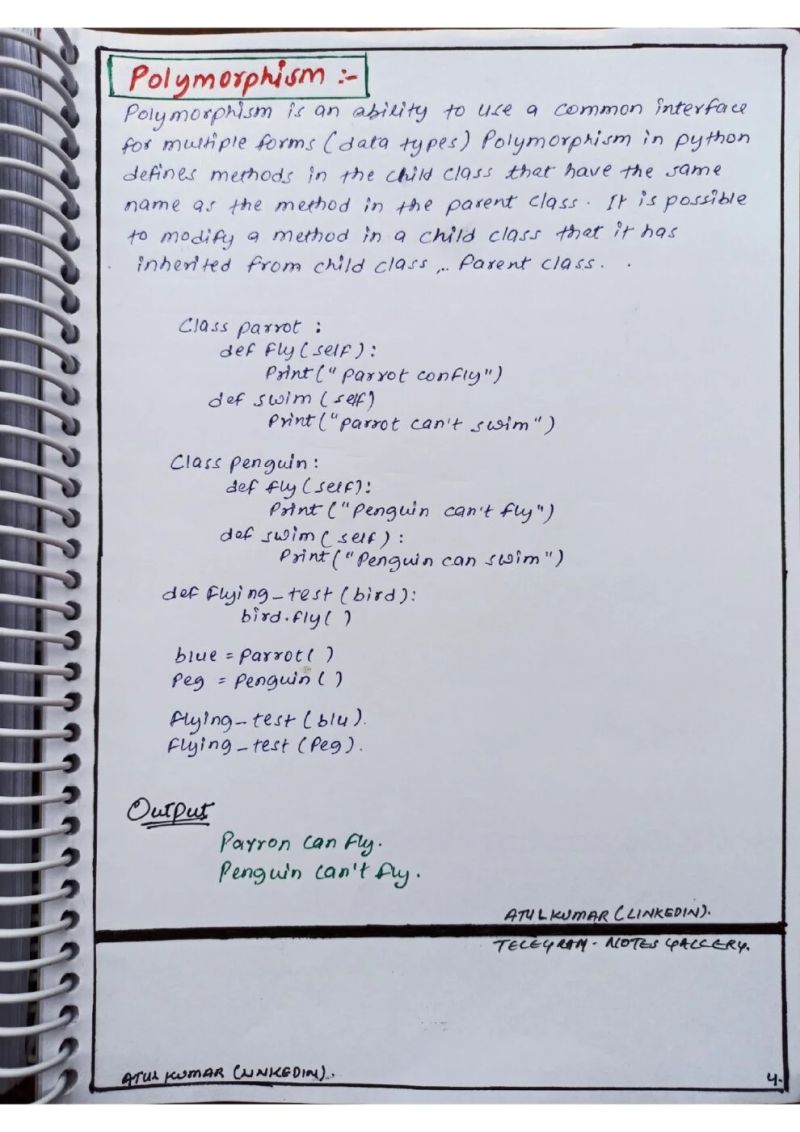 Polymorphism :-
Polymorphism is an ability to use a common interface
for multiple forms (data types) Polymorphism in python
defines methods in the child class that have the same
name as the method in the parent class. It is possible
to modify a method in a child class that it has
inherited from child class ,.. Parent class. .
Class parrot :
def fly(self):
Print("Parrot confly")
def swim (self)
Print("parrot can't swim")
Class penguin:
def fly(self):
Print("Penguin can't fly")
def swim( self) :
Print("Penguin can swim")
def flying_test(bird):
bird.fly( )
blue = parrot( )
Peg = Penguin( )
flying_test (blu).
flying_test (Peg).
Output
Parron can fly.
Penguin can't fly.
ATUL KUMAR (LINKEDIN).
TELEGRAM - NOTES GALLERY.
ATUL KUMAR (LINKEDIN).
4.